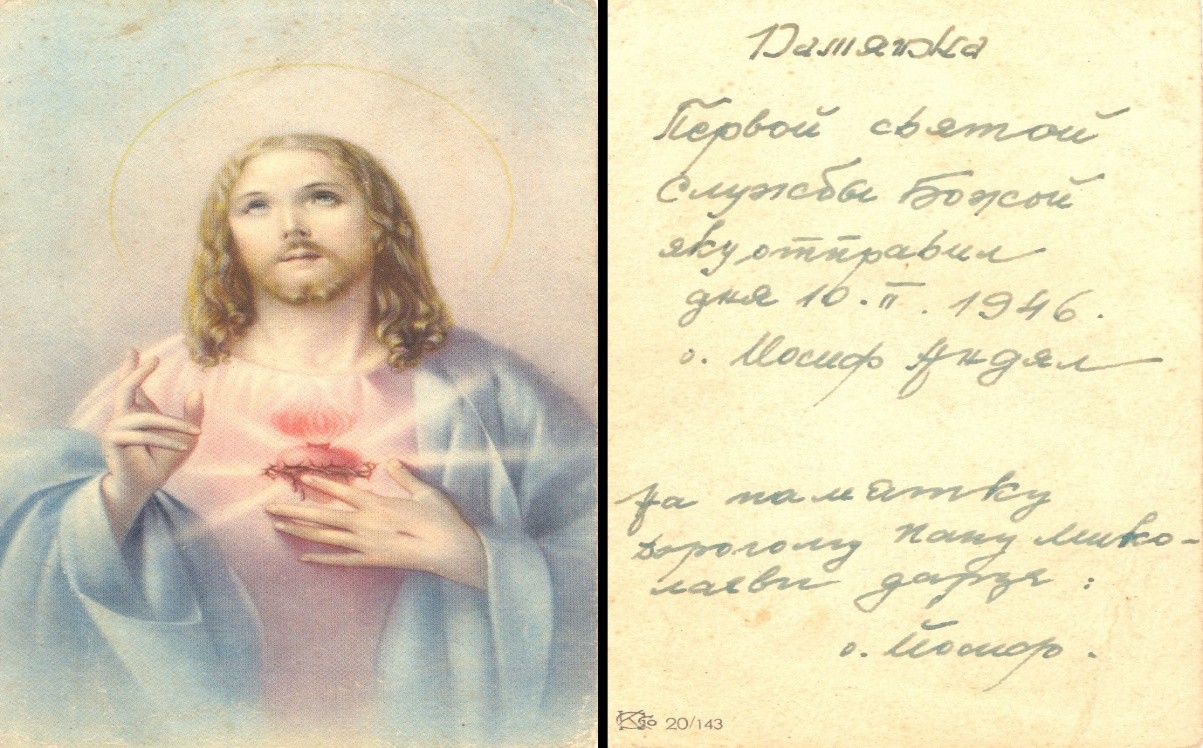 Памятка
Первой святой
Службы Божой
яку отправил
дня 10. II. 1946.
о. Йосиф Андял
На памятку
дорогому пану Мико-
лаєви дарує :
о. Йосиф.
20/143